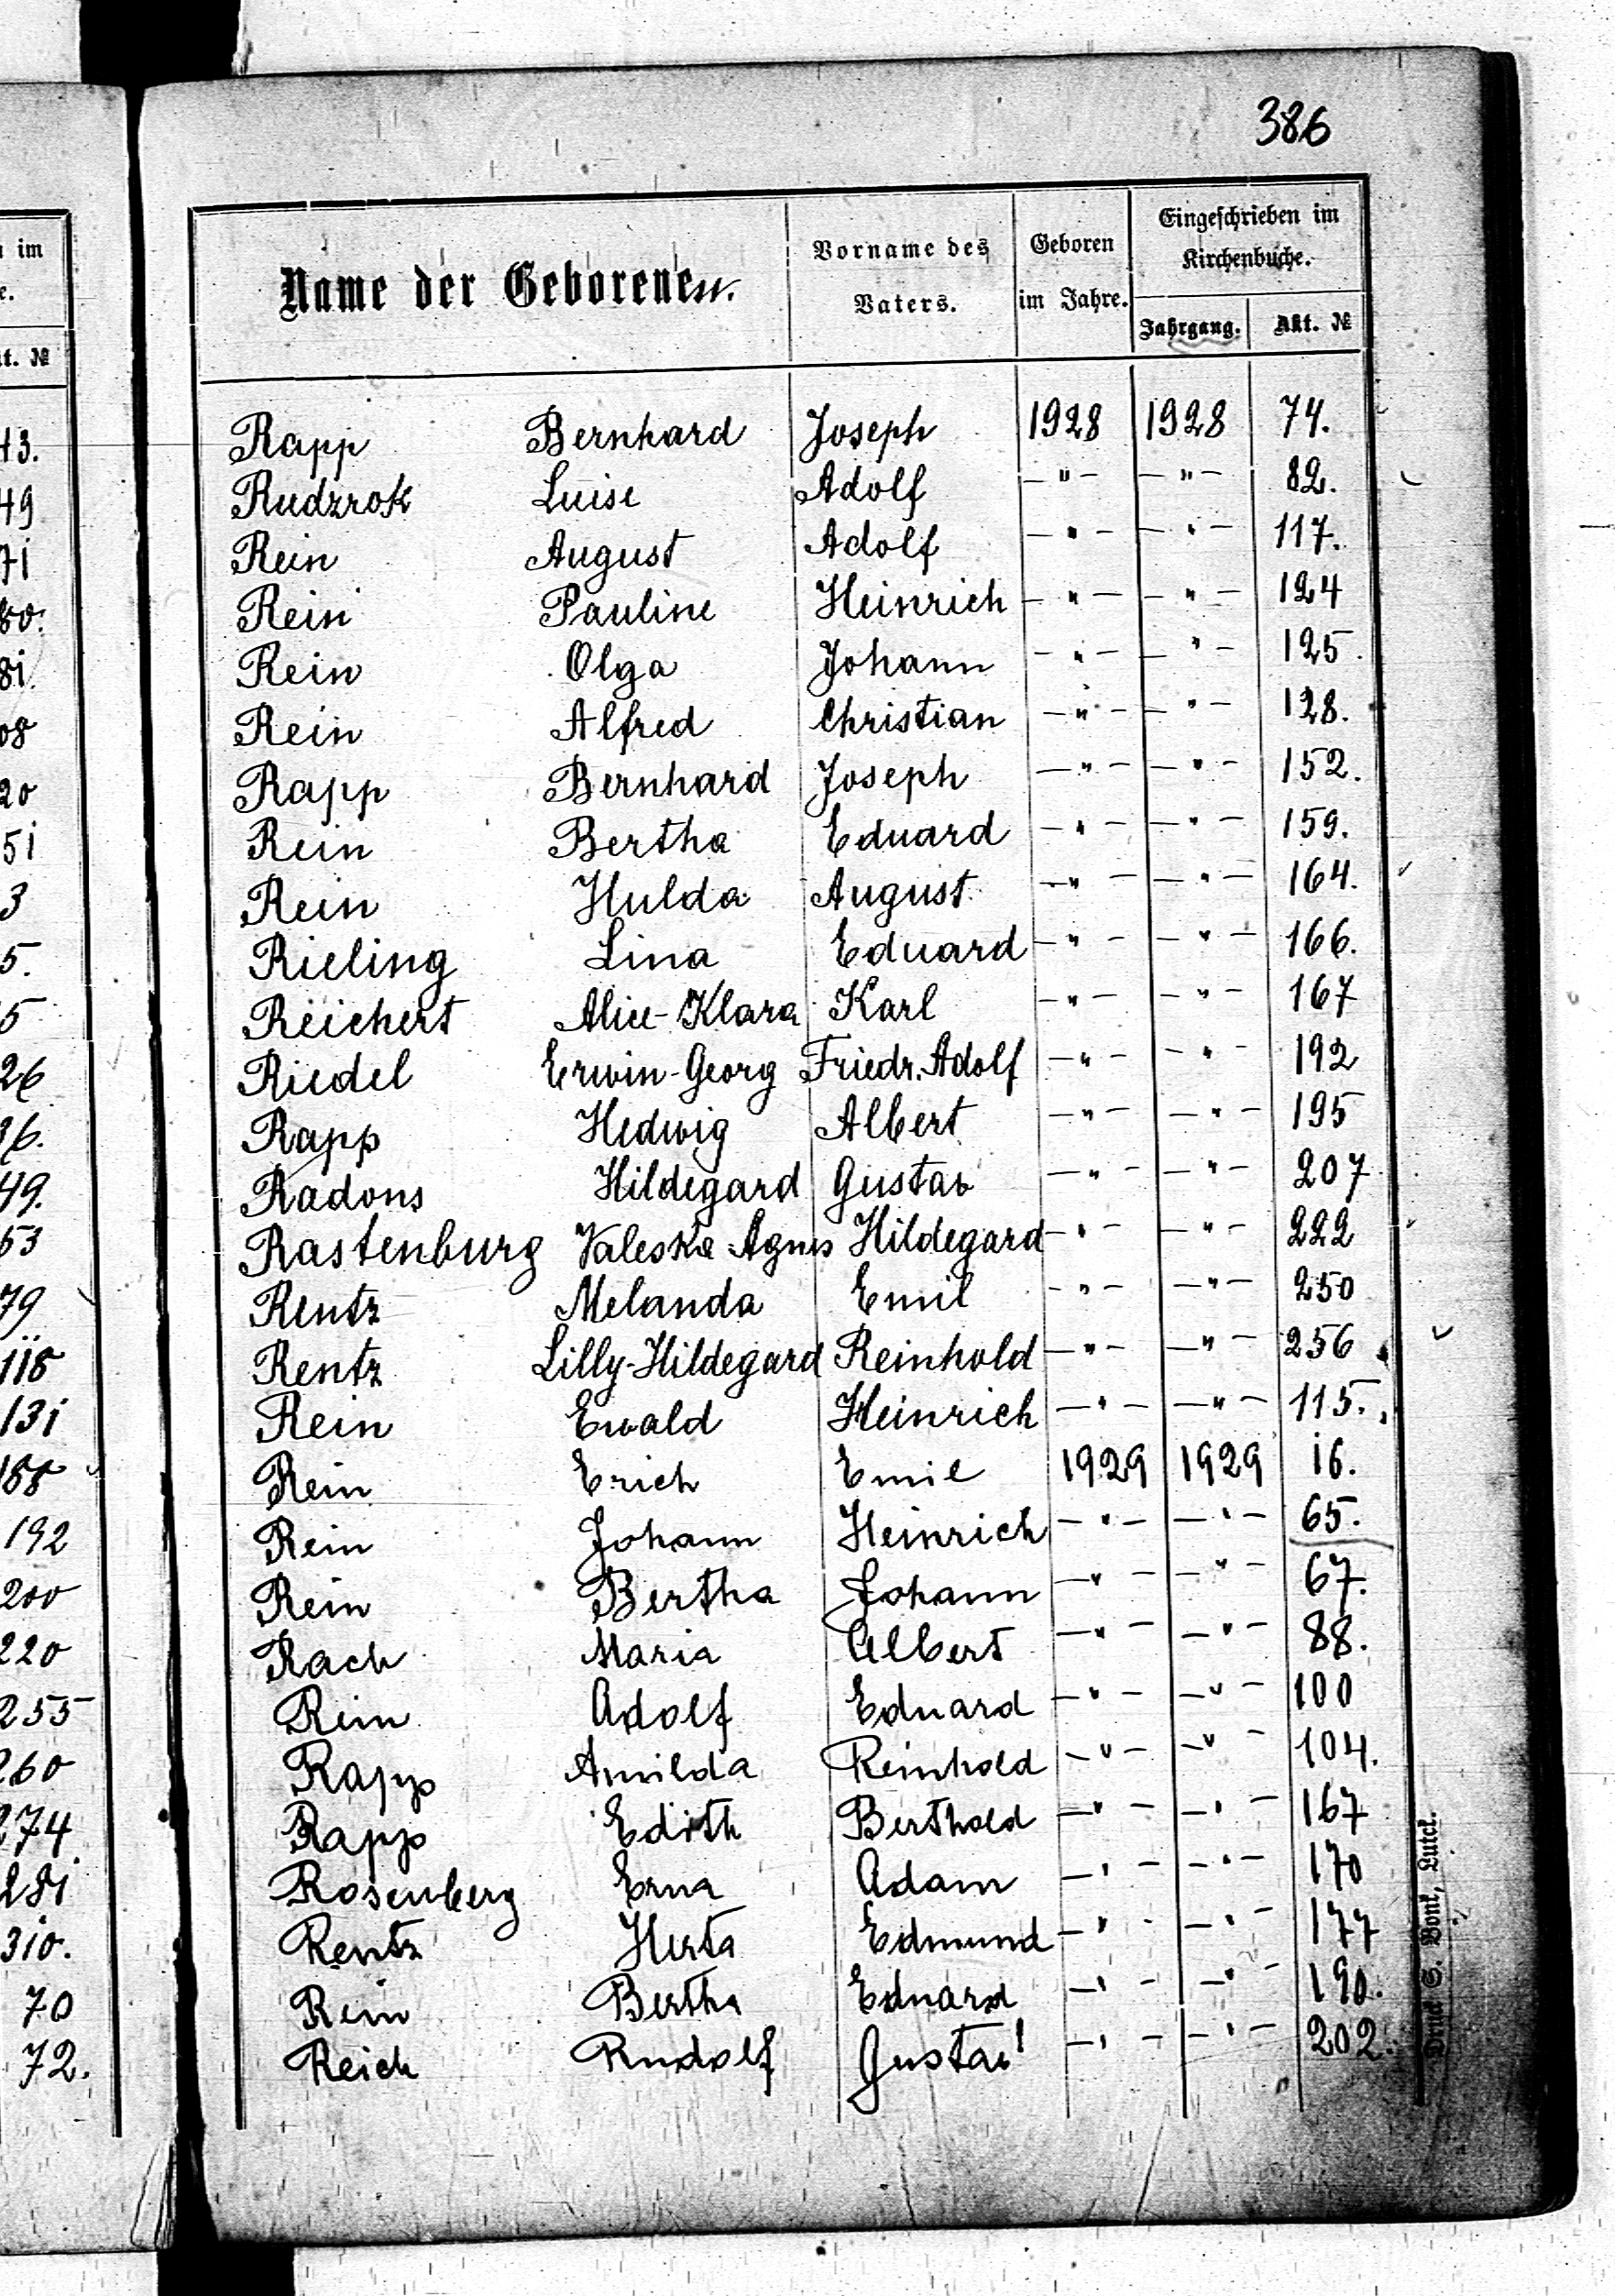 386
Name der Geborenen.
Vorname des Vaters.
Geboren im Jahre.
Eingeschrieben im Kirchenbuche.
Jahrgang.
Akt. №
Rapp Bernhard Joseph 1928 1928 74.
Rudzrok Luise Adolf -"- -"- 82.
Rein August Adolf -"- -"- 117.
Rein Pauline Heinrich -"- -"- 124
Rein Olga Johann -"- -"- 125.
Rein Alfred Christian -"- -"- 128.
Rapp Bernhard Joseph -"- -"- 152.
Rein Bertha Eduard -"- -"- 159.
Rein Hulda August -"- -"- 164.
Rieling Lina Eduard -"- -"- 166.
Reichert Alice-Klara Karl -"- -"- 167
Riedel Erwin-Georg Friedr. Adolf -"- -"- 192
Rapp Hedwig Albert -"- -"- 195
Radons Hildegard Gustav -"- -"- 207
Rastenburg Valeska Agnes Hildegard -"- -"- 222
Rentz Melanda Emil -"- -"- 250
Rentz Lilly-Hildegard Reinhold -"- -"- 256
Rein Ewald Heinrich -"- -"- 115.
Rein Erich Emil 1929 1929 16.
Rein Johann Heinrich -"- -"- 65.
Rein Bertha Johann -"- -"- 67.
Rach Maria Albert -"- -"- 88.
Rein Adolf Eduard -"- -"- 100
Rapp Amilda Reinhold -"- -"- 104.
Rapp Edith Berthold -"- -"- 167
Rosenberg Erna Adam -"- -"- 170
Rentz Herta Edmund -"- -"- 177
Rein Bertha Eduard -"- -"- 190.
Reich Rudolf Gustav -"- -"- 202.
Druck S. Bonk, Lutck.
im
t. №
43.
49
71
80.
81.
08
20
51
3
5.
5
26
36.
49.
53
79
118
131
188
192
200
220
255
260
274
281
310.
70
72.